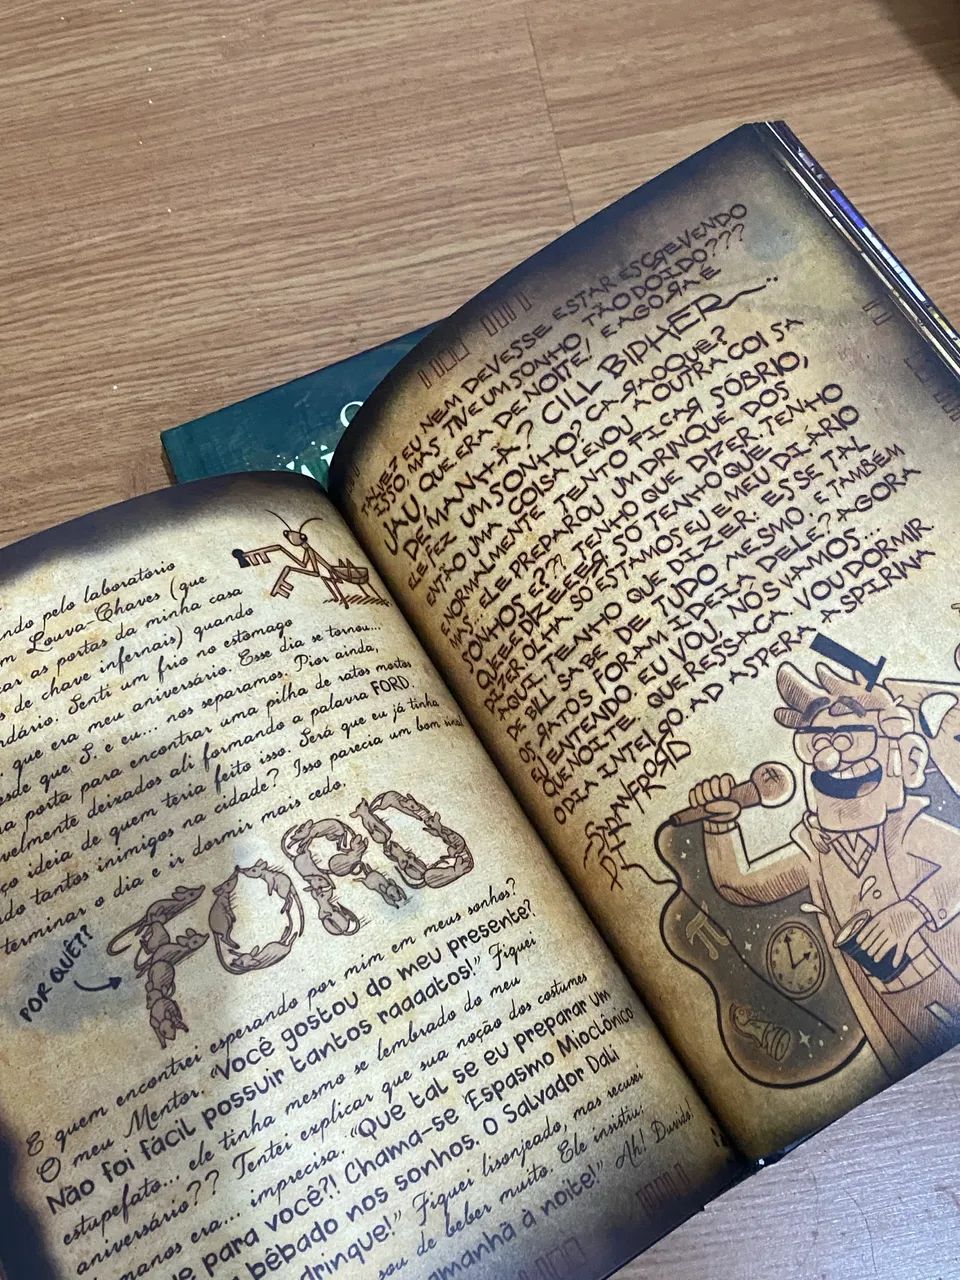 ndo pelo laboratório
m Louva-Chaves (que
car as portas da minha casa
s de chave infernais) quando
ndário. Senti um frio no estômago
que era meu aniversário. Esse dia se tornou...
esde que S. e eu... nos separamos. Pior ainda,
na porta para encontrar uma pilha de ratos mortos
velmente deixados ali formando a palavra FORD.
ço ideia de quem teria feito isso. Será que eu já tinha
ndo tantos inimigos na cidade? Isso parecia um bom sinal
terminar o dia e ir dormir mais cedo.
FORD
POR QUÊ??
E quem encontrei esperando por mim em meus sonhos?
O meu Mentor. "Você gostou do meu presente?
Não foi fácil possuir tantos raaaatos!" Fiquei
estupefato... ele tinha mesmo se lembrado do meu
aniversário?? Tentei explicar que sua noção dos costumes
manos era... imprecisa. "Que tal se eu preparar um
ue para você?! Chama-se 'Espasmo Mioclônico'
bêbado nos sonhos. O Salvador Dalí
drinque!" Fiquei lisonjeado, mas recusei
sou de beber muito. Ele insistiu:
amanhã à noite!" Ah!
TALVEZ EU NEM DEVESSE ESTAR ESCREVENDO
ISSO, MAS TIVE UM SONHO TÃO DOIDO???
UAU QUE ERA DE NOITE/ E AGORA É
DE MANHÃ? CILL BIPHER
ELE FEZ UM SONHO? CARAOQUE?
ENTÃO UMA COISA LEVOU A OUTRA COISA
NORMALMENTE TENTO FICAR SÓBRIO,
MAS... ELE PREPAROU UM DRINQUE DOS
SONHOS E??? TENHO QUE DIZER. TENHO
QUEEE DIZEEER SÓ TENHO QUE
DIZER OLHA SÓ ESTAMOS EU E MEU DIÁRIO
AQUI. TENHO QUE DIZER: ESSE TAL
DE BILL SABE DE TUDO MESMO. E TAMBÉM
OS RATOS FORAM IDEIA DELE? AGORA
EU ENTENDO. EU VOU, NÓS VAMOS...
QUE NOITE. QUE RESSACA. VOU DORMIR
O DIA INTEIRO. AD ASPERA ASPIRINA
—STANFRORD